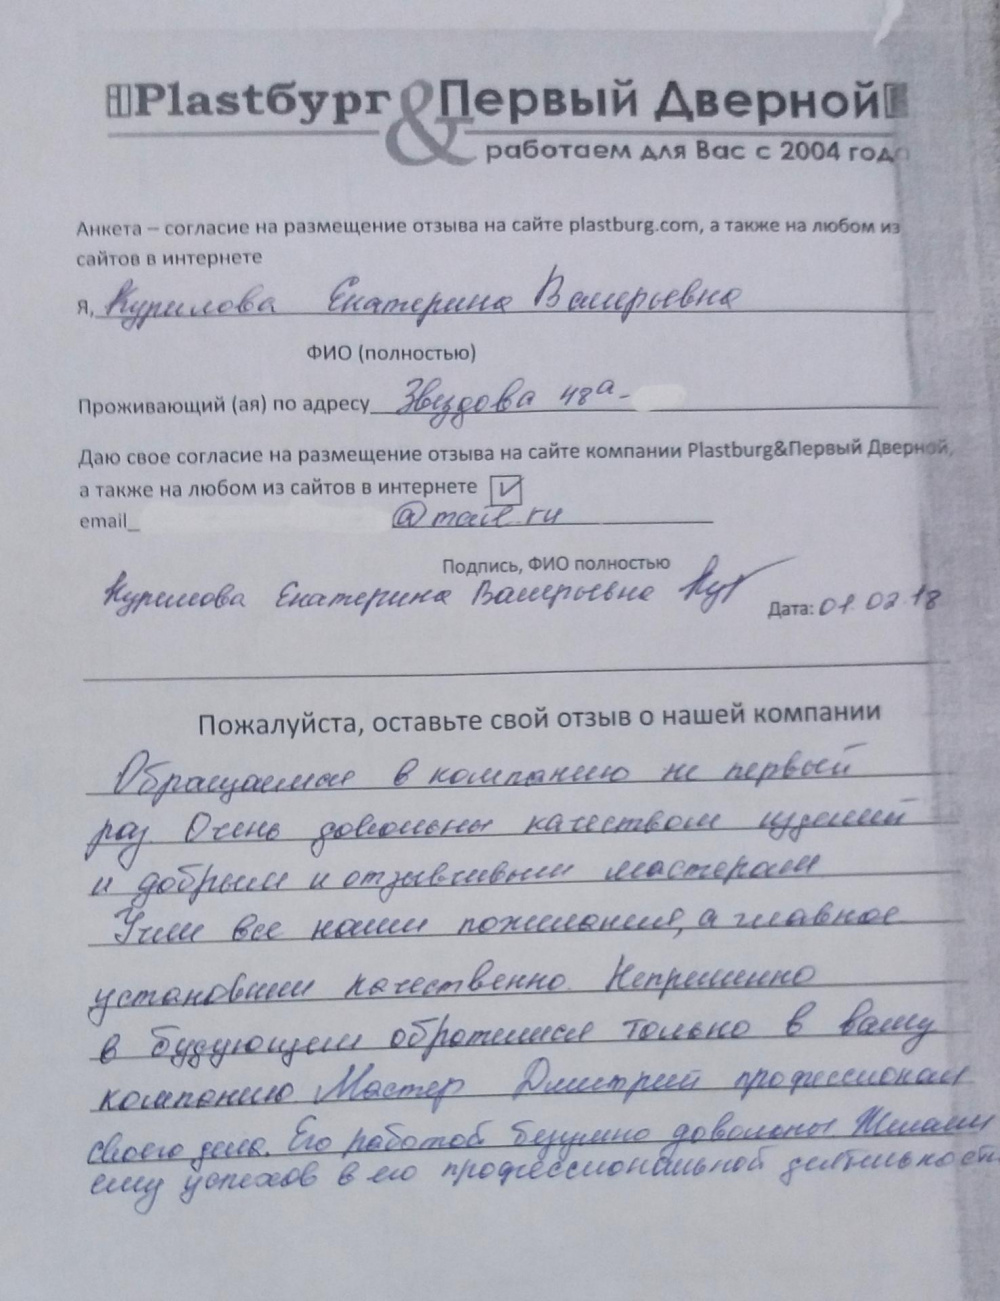 Plastбург & Первый Дверной
работаем для Вас с 2004 года
Анкета – согласие на размещение отзыва на сайте plastburg.com, а также на любом из
сайтов в интернете
Я, Курилова Екатерина Валерьевна
ФИО (полностью)
Проживающий (ая) по адресу Звездова 48а-
Даю свое согласие на размещение отзыва на сайте компании Plastburg&Первый Дверной,
а также на любом из сайтов в интернете
email_ @mail.ru
Подпись, ФИО полностью
Курилова Екатерина Валерьевна
Дата: 01.02.18
Пожалуйста, оставьте свой отзыв о нашей компании
Обращаемся в компанию не первый
раз Очень довольны качеством изделий
и добрым и отзывчивым мастерам
Учли все наши пожелания, а главное
установили качественно. Непременно
в будующем обратимся только в вашу
компанию Мастер Дмитрий профессионал
своего дела. Его работой безумно довольны Желаем
ему успехов в его профессиональной деятельности